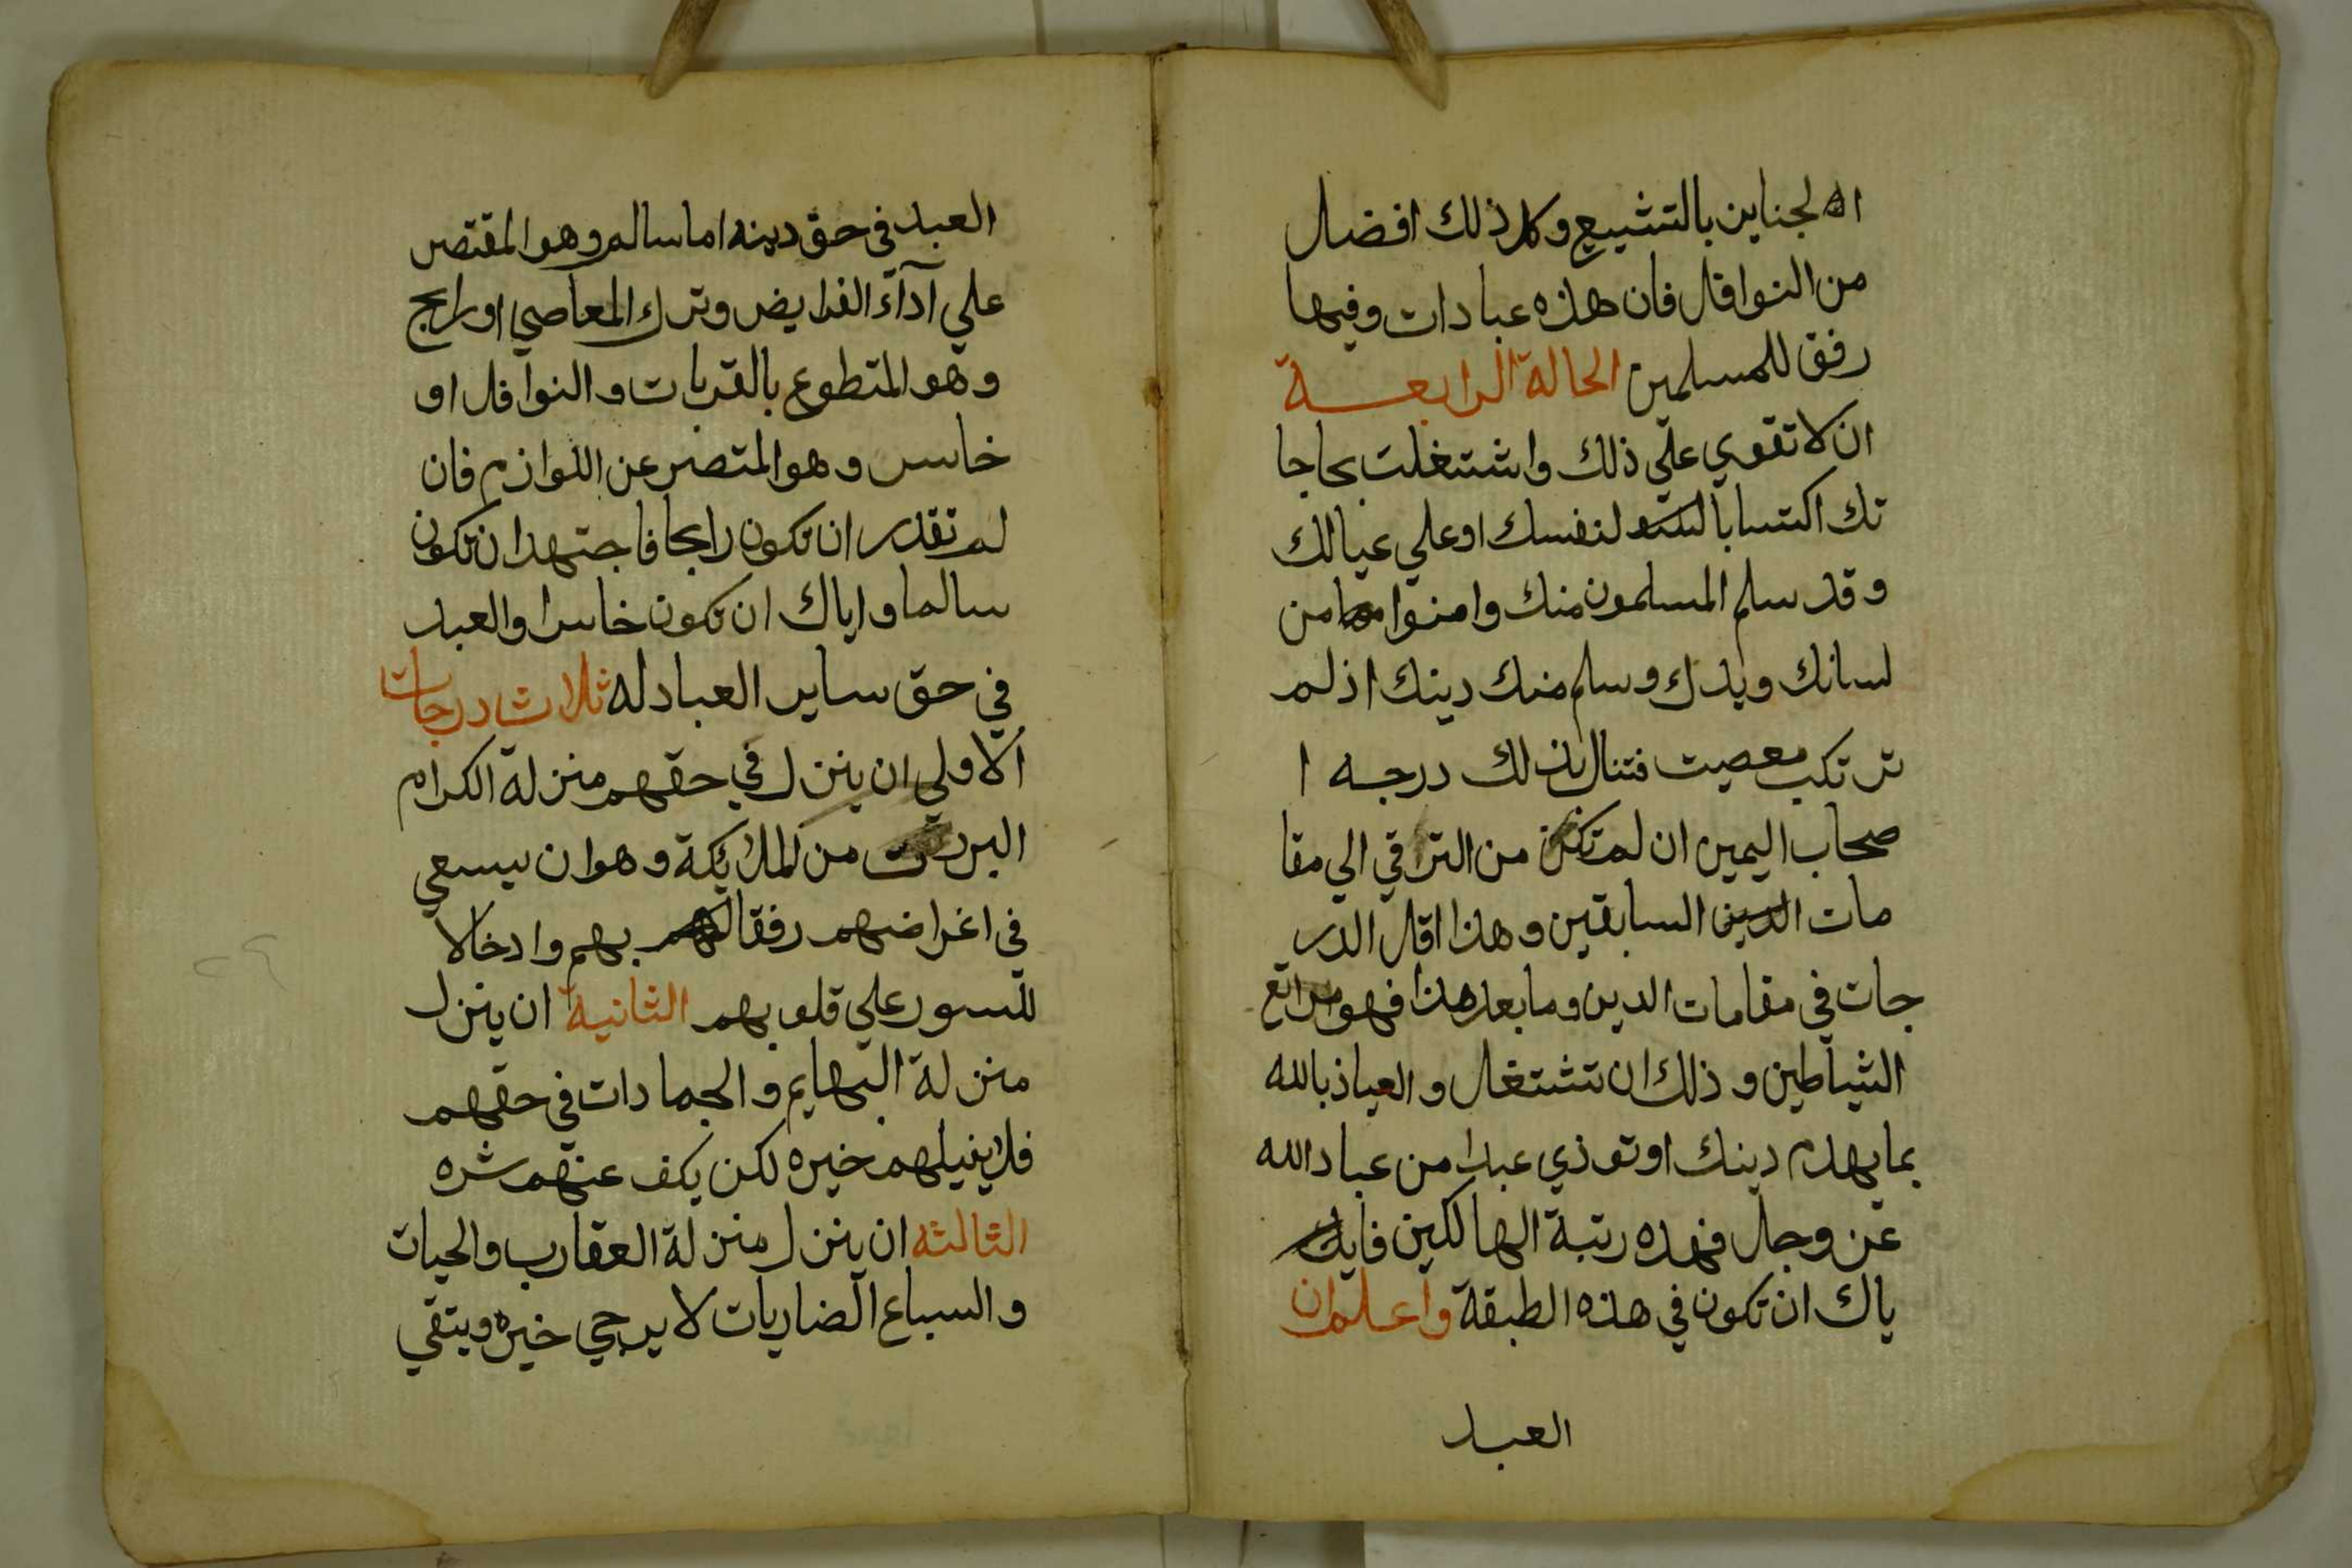 الجنايز بالتشييع وكل ذلك افضل
من النوافل فان هذه عبادات وفيها
رفق للمسلمين الحالة الرابعة
ان لا تقوي علي ذلك واشتغلت بحاجا
تك اكتسابا لنفسك او علي عيالك
وقد سلم المسلمون منك وامنوا من
لسانك ويدك وسلم منك دينك اذ لم
ترتكب معصيت فتنال بذلك درجه ا
صحاب اليمين ان لم تكن من التراقي الي مقا
مات السابقين وهذا اقل الدر
جات في مقامات الدين وما بعد هذا فهو مراتع
الشياطين وذلك ان تشتغل والعياذ بالله
بما يهدم دينك او توذي عبدا من عباد الله
عز وجل فهذه رتبة الهالكين فا
ياك ان تكون في هذه الطبقة واعلم ان
العبد
العبد في حق دينه اما سالم وهو المقتصر
علي آدآء الفرايض وترك المعاصي او رابح
وهو المتطوع بالقربات والنوافل او
خاسر وهو المتصر عن اللوازم فان
لم تقدر ان تكون رابحا فاجتهد ان تكون
سالما واياك ان تكون خاسرا والعبد
في حق ساير العباد له ثلاث درجات
الاولي ان ينزل في حقهم منزلة الكرام
من الملايكة وهو ان يسعي
في اغراضهم رفقا بهم وادخالا
للسور علي قلوبهم الثانية ان ينزل
منزلة البهايم والجمادات في حقهم
فلا ينيلهم خيره لكن يكف عنهم شره
الثالثه ان ينزل منزلة العقارب والحيات
والسباع الضاريات لا يرجي خيره ويتقي